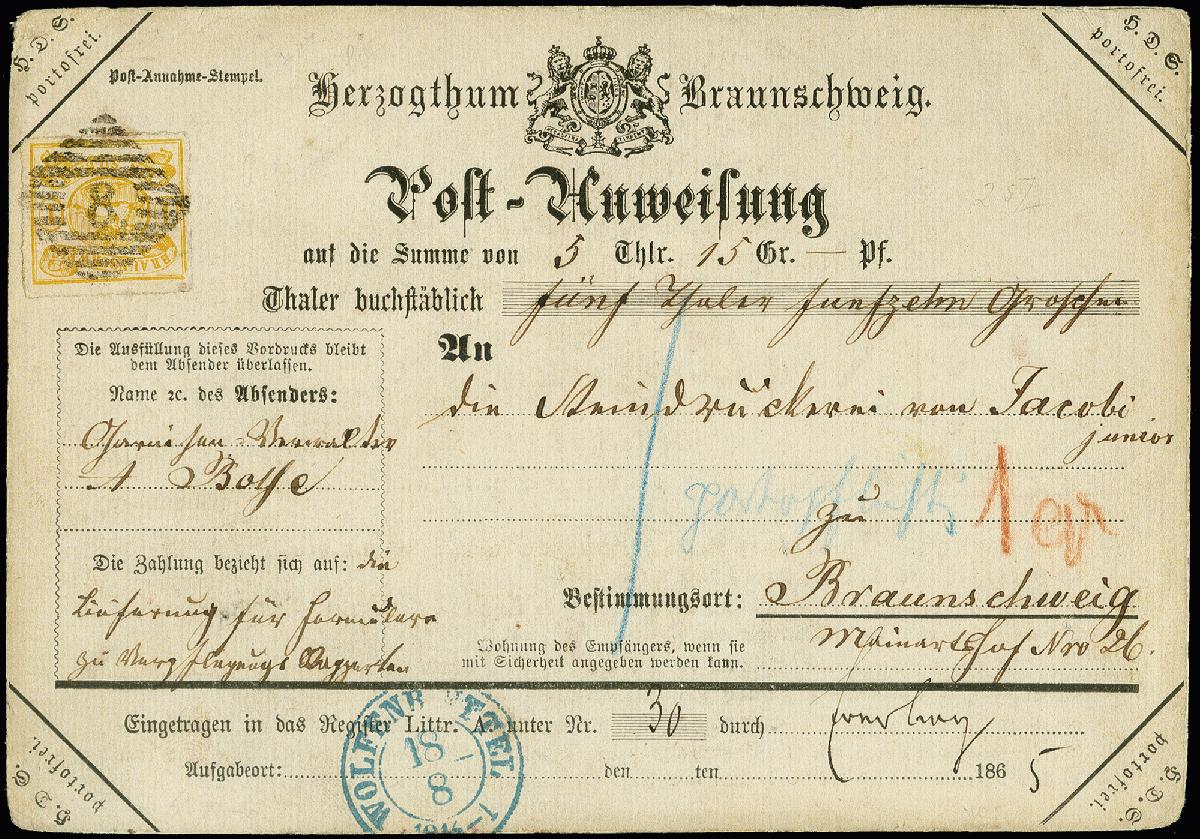 H. D. S.
portofrei.
H. D. S.
portofrei.
Post-Annahme-Stempel.
Herzogthum Braunschweig.
8
BRAU
Post-Anweisung
auf die Summe von 5 Thlr. 15 Gr. — Pf.
Thaler buchstäblich fünf Thaler funfzehn Groschen
Die Ausfüllung dieses Vordrucks bleibt
dem Absender überlassen.
Name ꝛc. des Absenders:
Verwalter
A Bothe
Die Zahlung bezieht sich auf: die
Lieferung für Formulare
zu Verpflegungs
An
die Steindruckerei von Jacobi
junior
portopflicht
zu
1 gr
Bestimmungsort: Braunschweig
Wohnung des Empfängers, wenn sie
mit Sicherheit angegeben werden kann.
Mainarts Hof Nro 26.
Eingetragen in das Register Littr. A. unter Nr. 30 durch
Aufgabeort: den ten 1865
WOLFENBÜTTEL
18
8
H. D. S.
portofrei.
H. D. S.
portofrei.